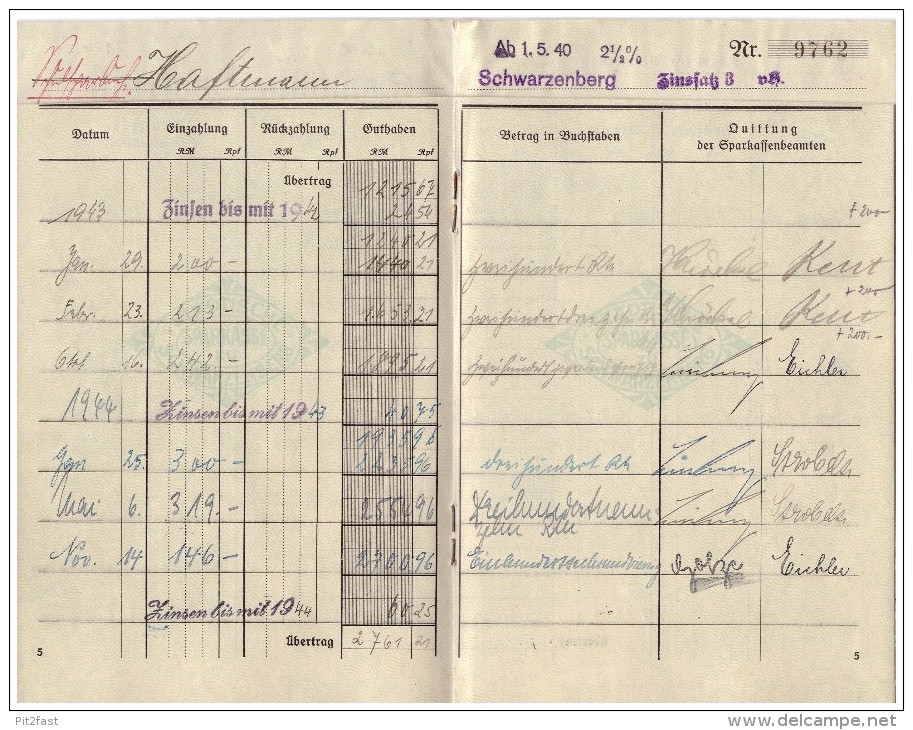 Haftmann
Ab 1. 5. 40 2½% Nr. 9762
Schwarzenberg Zinssatz 3 vH.
Datum Einzahlung Rückzahlung Guthaben Betrag in Buchstaben Quittung
der Sparkassenbeamten
RM Rpf RM Rpf RM Rpf
Übertrag 1215 67
1943 Zinsen bis mit 1942 24 54 + 200-
1240 21
Jan. 29. 200 - 1440 21 zweihundert Rm Kent
+ 200
Febr. 23. 213 - 1653 21 Kent
+ 200.-
Okt. 16. 242 - 1895 21 Eichler
1944 Zinsen bis mit 1943 40 75
1935 96
Jan 25. 300 - 2235 96 dreihundert Rm
Mai 6. 319. - 2554 96 Dreihundertneun
zehn Rm
Nov. 14 146 - 2700 96 Einhundertsechsundvierzig Eichler
Zinsen bis mit 1944 60 25
Übertrag 2761 21
5 5
Pit2fast
delcampe.net